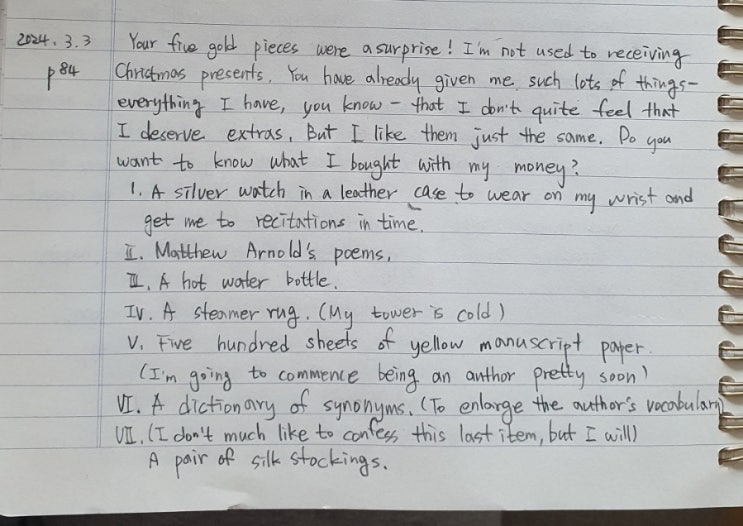 2024.3.3 Your five gold pieces were a surprise! I'm not used to receiving
p84 Christmas presents. You have already given me such lots of things-
everything I have, you know - that I don't quite feel that
I deserve extras. But I like them just the same. Do you
want to know what I bought with my money?
I. A silver watch in a leather case to wear on my wrist and
get me to recitations in time.
II. Matthew Arnold's poems.
III. A hot water bottle.
IV. A steamer rug. (My tower is cold)
V. Five hundred sheets of yellow manuscript paper.
(I'm going to commence being an author pretty soon)
VI. A dictionary of synonyms. (To enlarge the author's vocabulary)
VII. (I don't much like to confess this last item, but I will)
A pair of silk stockings.